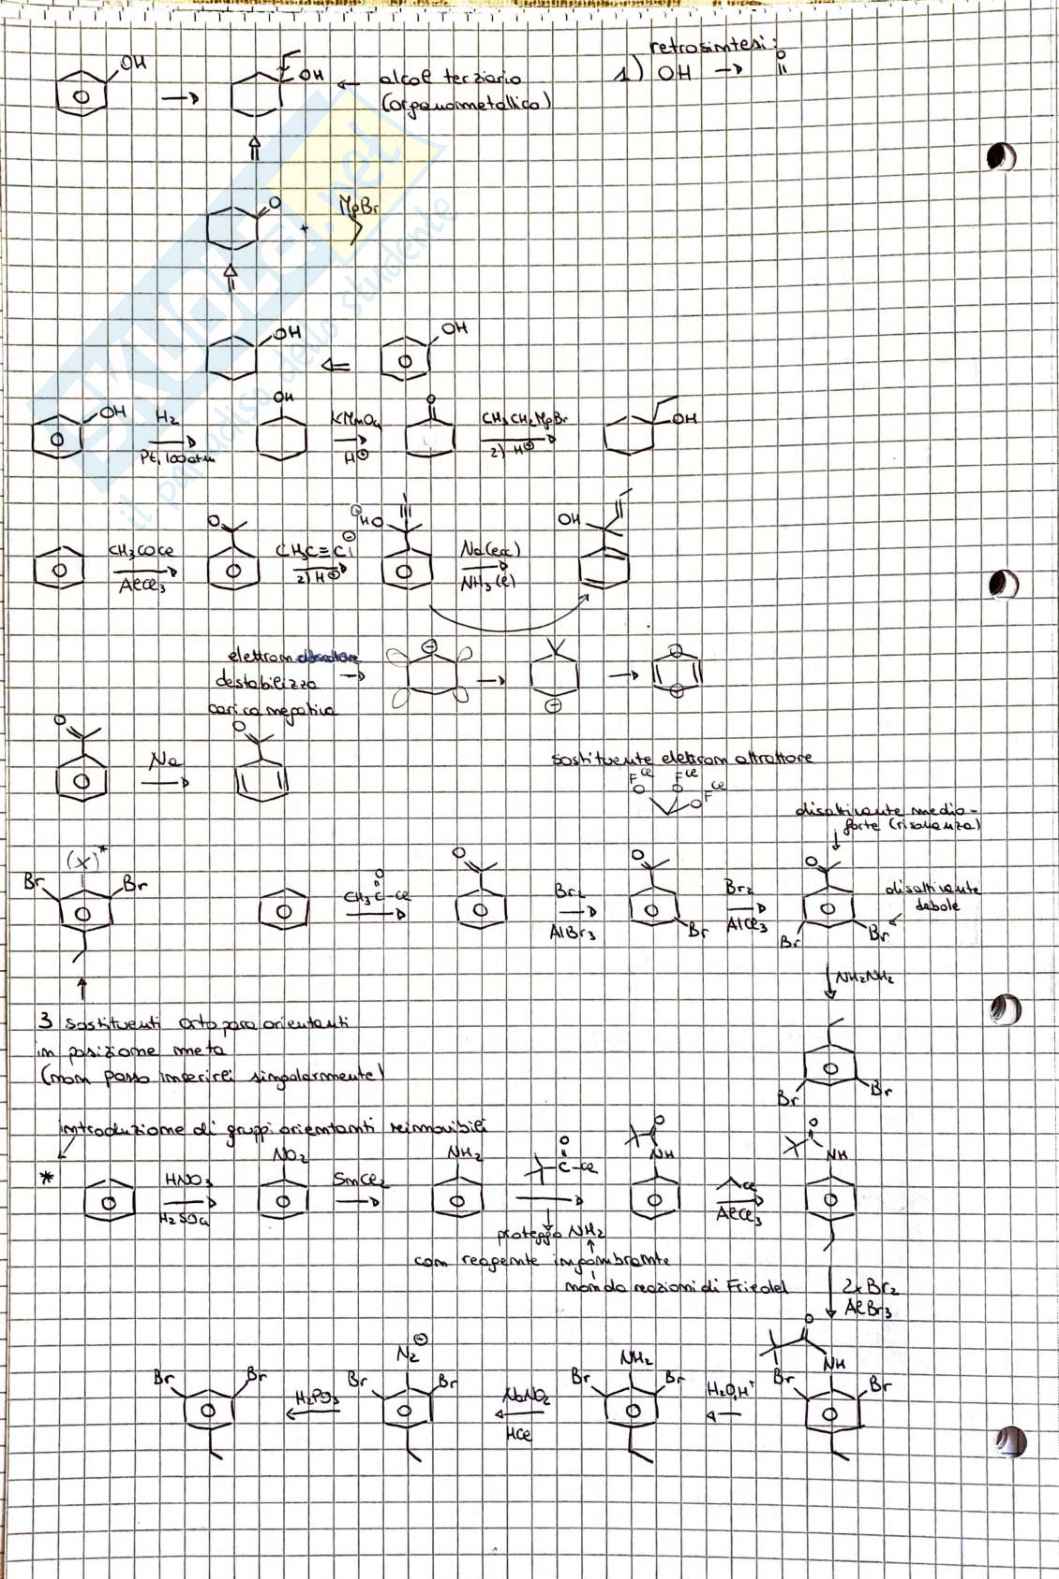 retrosintesi:
OH
OH
← alcol terziario
1) OH → O
(organometallico)
O
+
MgBr
OH
OH
OH
H2
Pt, 100atm
OH
KMnO4
H⊕
O
CH3CH2MgBr
2) H⊕
OH
CH3COCl
AlCl3
O
CH3C≡C⊖
2) H⊕
HO
Na(ec)
NH3(l)
OH
elettron attrattore
destabilizza
carica negativa
O
Na
O
sostituente elettron attrattore
disattivante medio-
forte (risonanza)
(x)*
Br
Br
O
CH3-C-Cl
O
Br2
AlBr3
O
Br
Br2
AlCl3
O
Br
Br
disattivante
debole
NH2NH2
3 sostituenti orto para orientanti
in posizione meta
(non posso inserirli singolarmente)
Br
Br
introduzione di gruppi orientanti rimovibili
*
HNO3
H2SO4
NO2
SnCl2
NH2
O
C-Cl
O
NH
Cl
AlCl3
O
NH
proteggo NH2
con reagente ingombrante
non do reazioni di Friedel
2xBr2
AlBr3
O
NH
Br
Br
H2O,H+
NH2
Br
Br
NaNO2
HCl
N2⊕
Br
Br
H3PO3
Br
Br